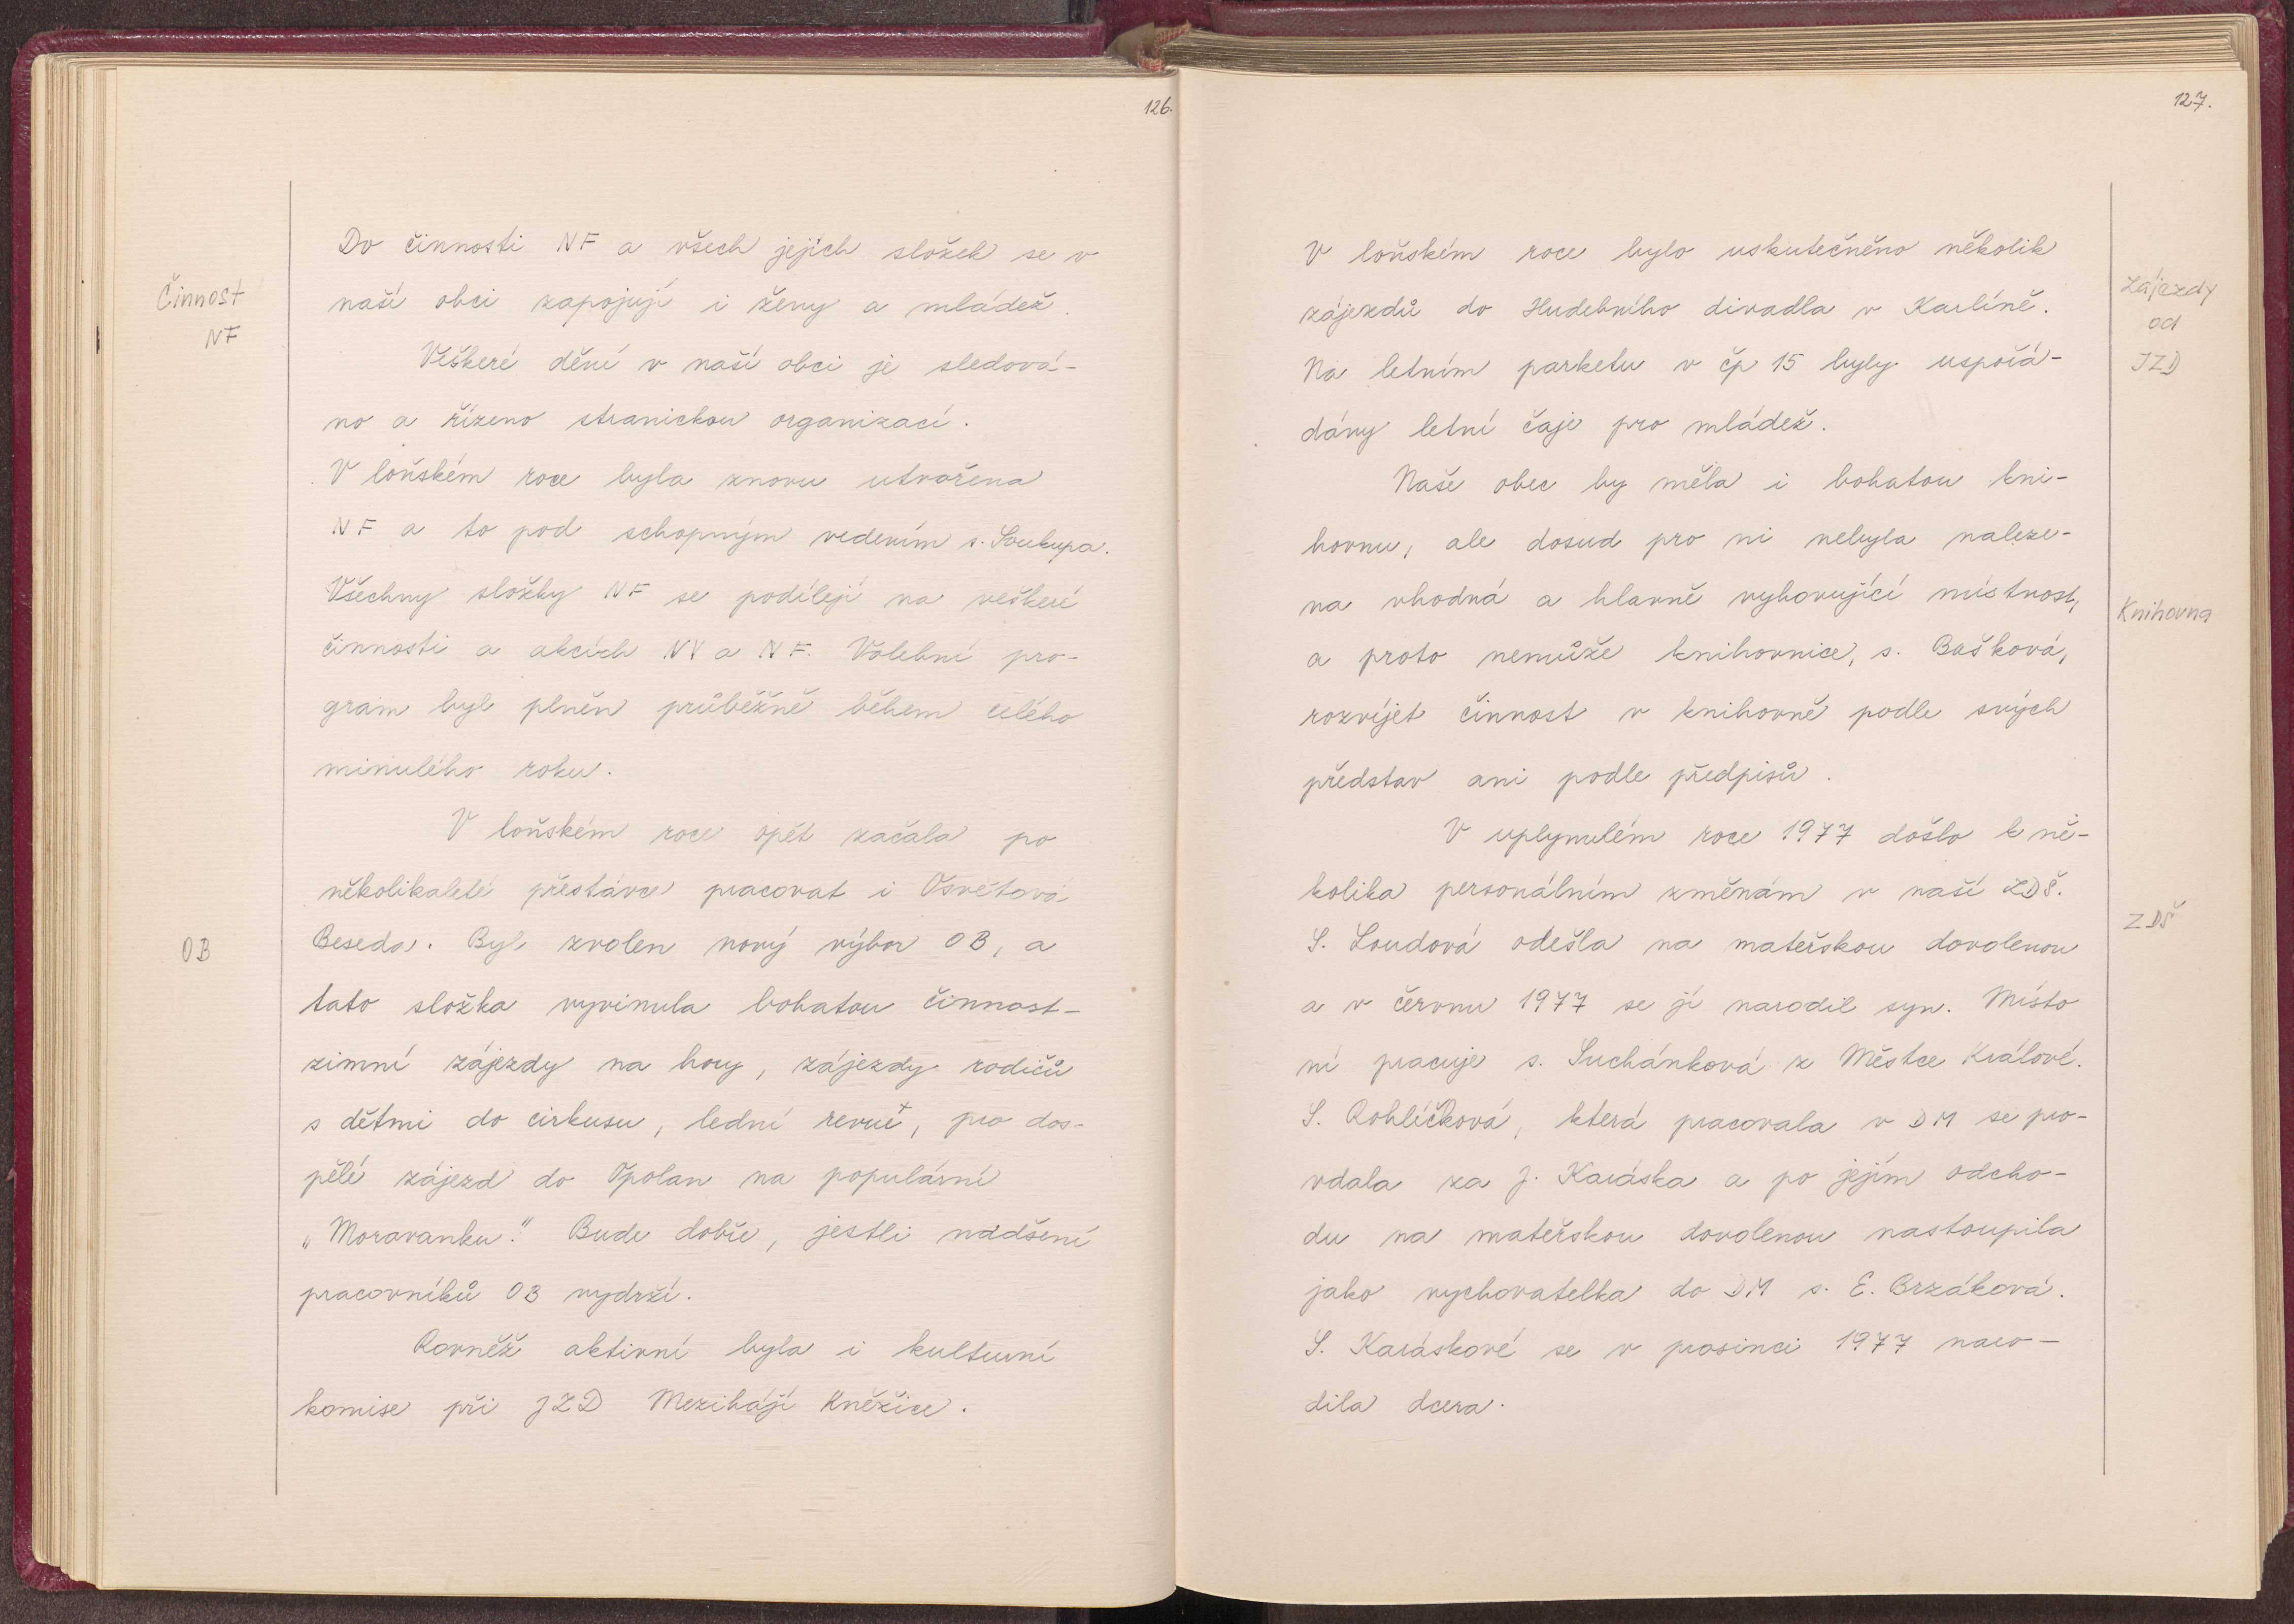 126.
Činnost
NF
Do činnosti NF a všech jejích složek se v
naší obci zapojují i ženy a mládež.
Veškeré dění v naší obci je sledová-
no a řízeno stranickou organizací.
V loňském roce byla znovu utvořena
NF a to pod schopným vedením s. Soukupa.
Všechny složky NF se podílejí na veškeré
činnosti a akcích NV a NF. Volební pro-
gram byl plněn průběžně během celého
minulého roku.
V loňském roce opět začala po
několikaleté přestávce pracovat i Osvětová
OB
Beseda. Byl zvolen nový výbor OB, a
tato složka vyvinula bohatou činnost-
zimní zájezdy na hory, zájezdy rodičů
s dětmi do cirkusu, lední revue, pro dos-
pělé zájezd do Opolan na populární
„Moravanku." Bude dobře, jestli nadšení
pracovníků OB vydrží.
Rovněž aktivní byla i kulturní
komise při JZD Mezihájí Kněžice.
127.
V loňském roce bylo uskutečněno několik
zájezdů do Hudebního divadla v Karlíně.
Na letním parketu v čp 15 byly uspořá-
dány letní čaje pro mládež.
Zájezdy
od
JZD
Naše obec by měla i bohatou kni-
hovnu, ale dosud pro ni nebyla naleze-
na vhodná a hlavně vyhovující místnost,
Knihovna
a proto nemůže knihovnice, s. Bašková,
rozvíjet činnost v knihovně podle svých
představ ani podle předpisů.
V uplynulém roce 1977 došlo k ně-
kolika personálním změnám v naší ZDŠ.
ZDŠ
S. Loudová odešla na mateřskou dovolenou
a v červnu 1977 se jí narodil syn. Místo
ní pracuje s. Suchánková z Městce Králové.
S. Rohlíčková, která pracovala v DM se pro-
vdala za J. Karáska a po jejím odcho-
du na mateřskou dovolenou nastoupila
jako vychovatelka do DM s. E. Brzáková.
S. Karáskové se v prosinci 1977 naro-
dila dcera.